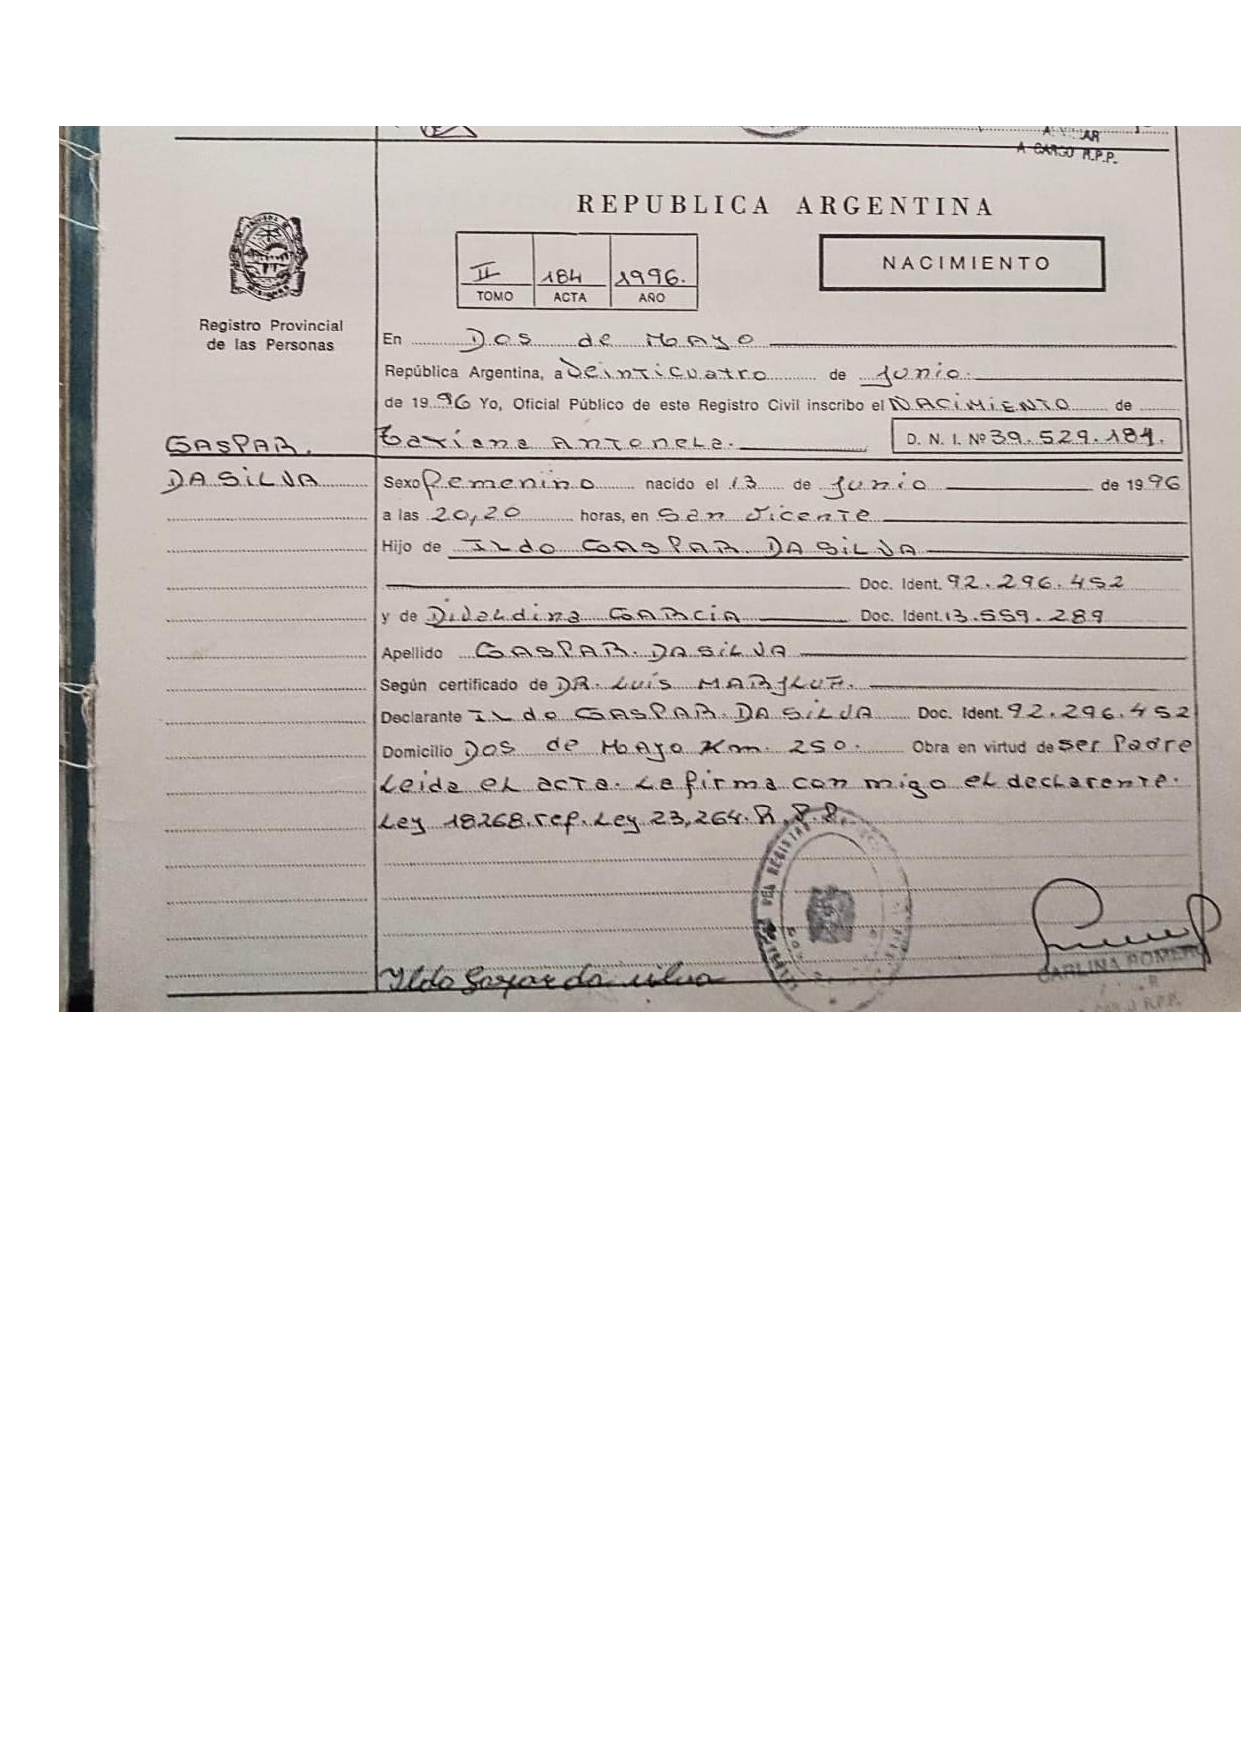 A CARGO R.P.P.
REPUBLICA ARGENTINA
NACIMIENTO
II 184 1996.
TOMO ACTA AÑO
Registro Provincial
de las Personas
En Dos de Mayo
República Argentina, a Veinticuatro de Junio.
de 1996 Yo, Oficial Público de este Registro Civil inscribo el NACIMIENTO de
GASPAR.
Antonela. D. N. I. Nº 39.529.184.
DA SILVA
Sexo Femenino nacido el 13 de Junio de 1996
a las 20,20 horas, en San Vicente
Hijo de ILdo GASPAR DA SILVA
Doc. Ident. 92.296.452
y de Divaldina GARCIA Doc. Ident. 13.559.289
Apellido GASPAR. DA SILVA
Según certificado de DR. Luis
Declarante ILdo GASPAR. DA SILVA Doc. Ident. 92.296.452
Domicilio Dos de Mayo Km. 250. Obra en virtud de ser Padre
Leida el acta. La firma con migo el declarente.
Ley 18268.rep. Ley 23,264. R.P.P.
DEL REGISTRO
Ildo Gaspar da silva
CARLINA ROMERO
R.P.P.